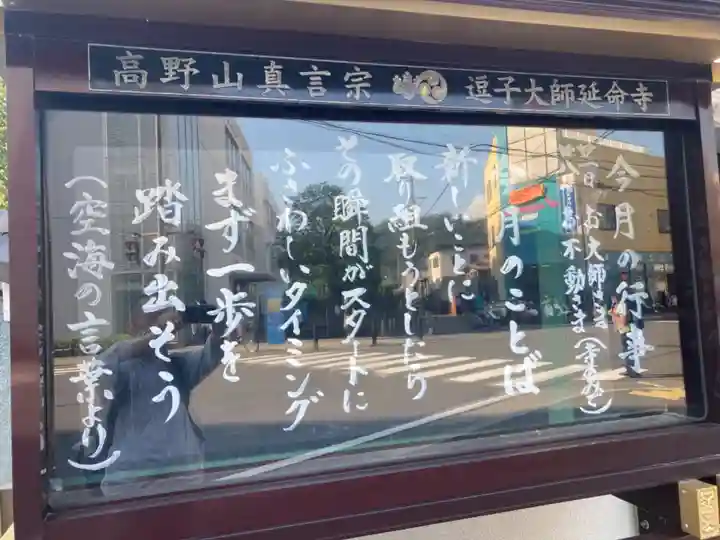 高野山真言宗 逗子大師延命寺
今月の行事
廿一日 お大師さま
廿八日 お不動さま
今月のことば
新しいことに
取り組もうとしたら
その瞬間がスタートに
ふさわしいタイミング
まず一歩を
踏み出そう
(空海の言葉より)